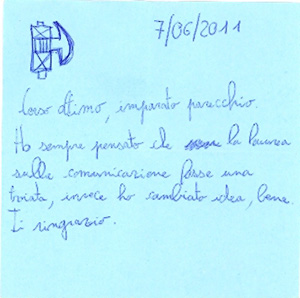 7/06/2011
Corso ottimo, imparato parecchio.
Ho sempre pensato che la laurea
sulle comunicazione fosse una
troiata, invece ho cambiato idea, bene.
Ti ringrazio.